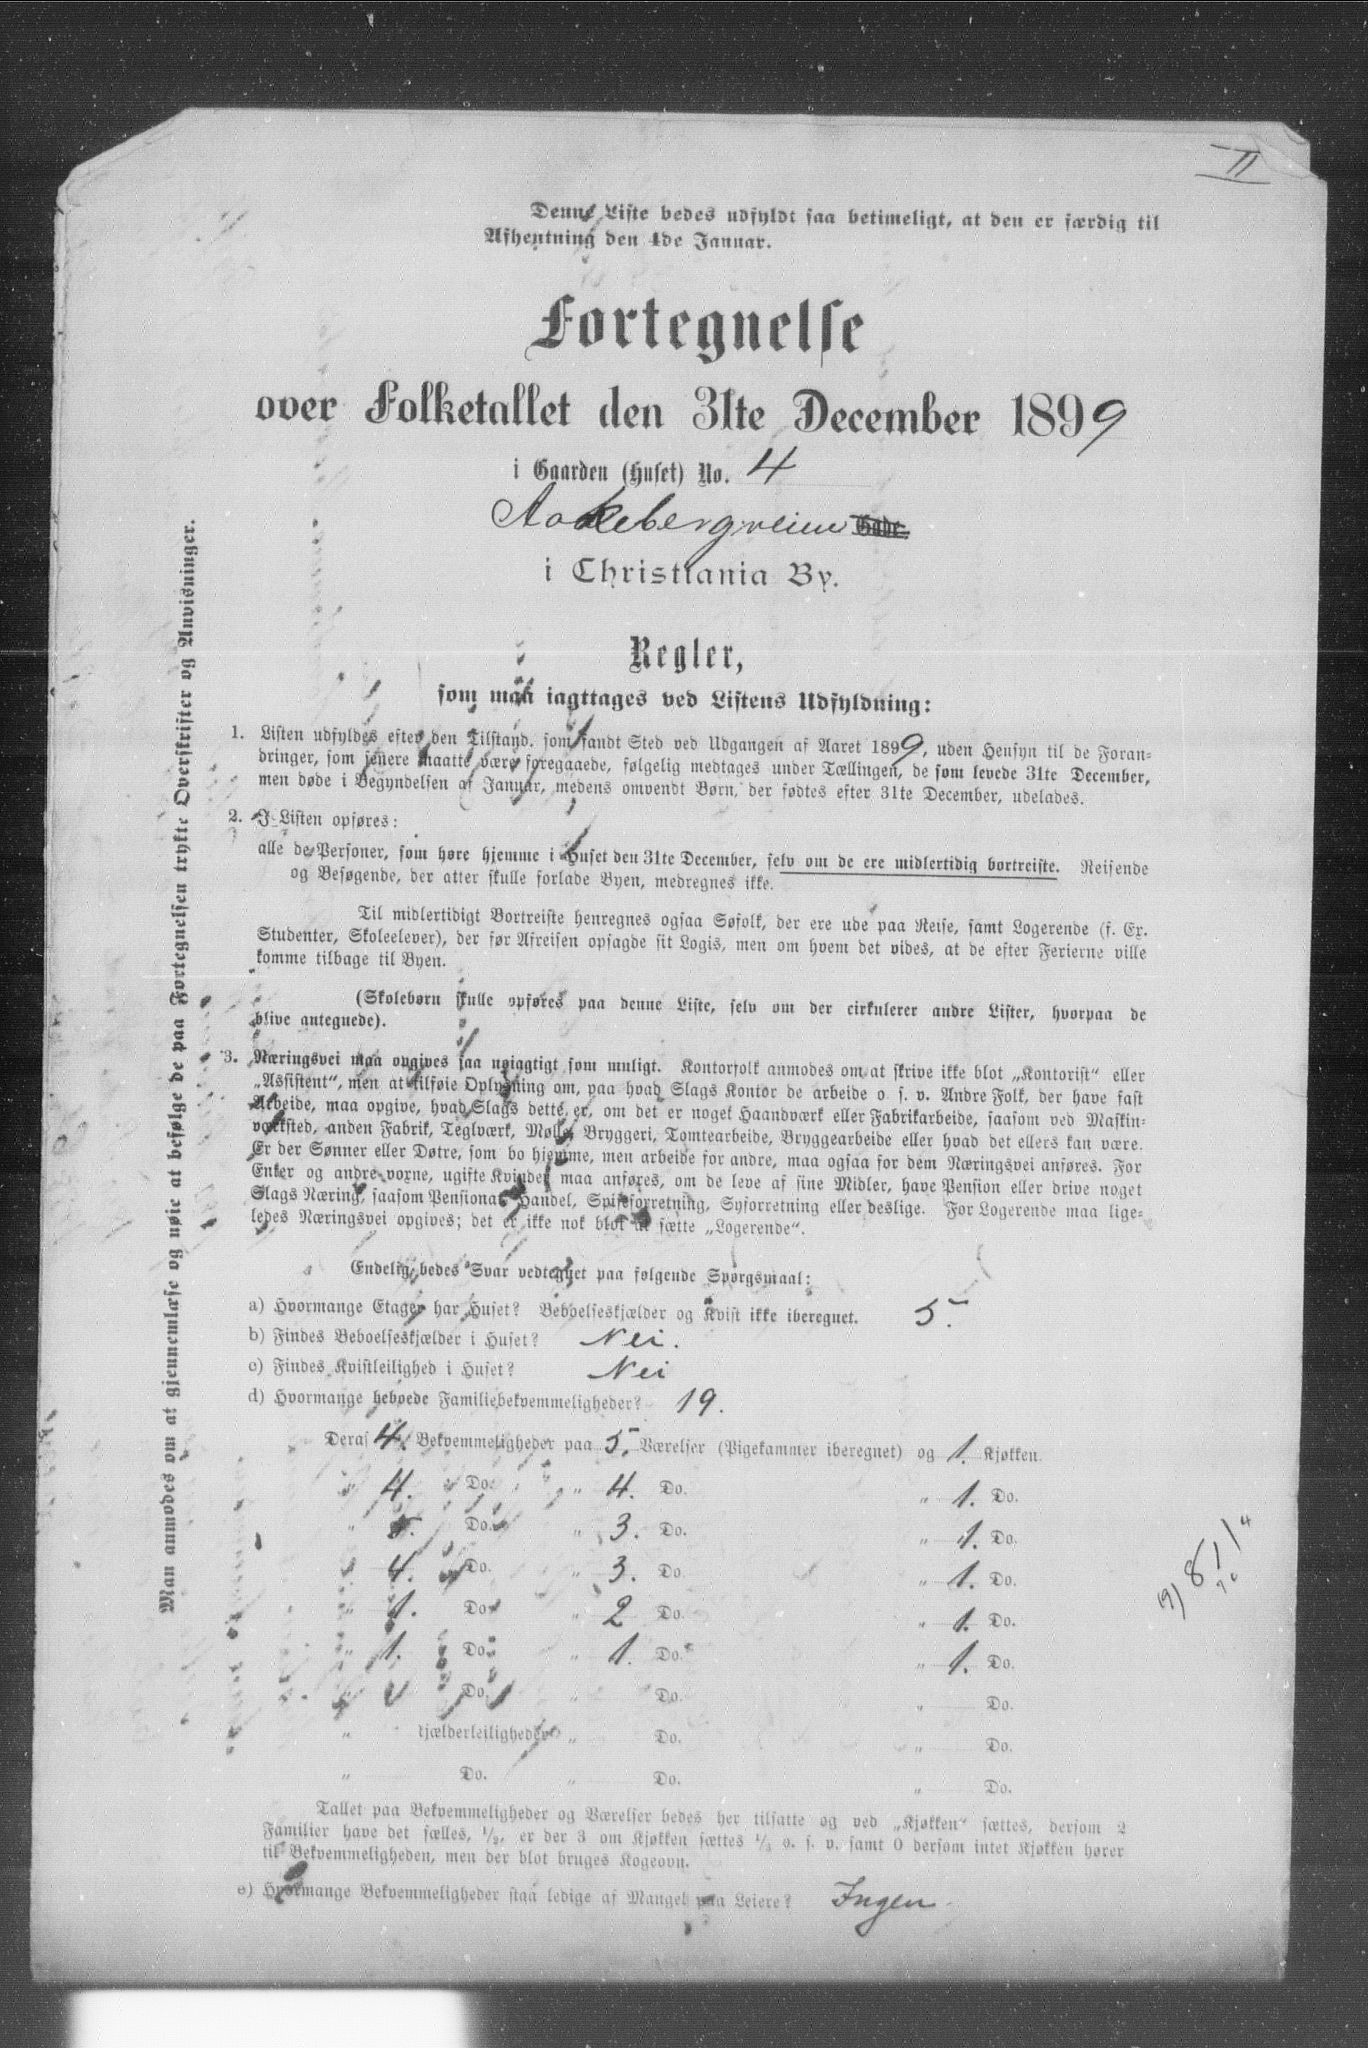 II
Denne Liste bedes udfyldt saa betimeligt, at den er færdig til
Afhentning den 4de Januar.
Fortegnelse
over Folketallet den 31te December 1899
i Gaarden (Huset) No. 4
Aakebergveien Gade
i Christiania By.
Regler,
som maa iagttages ved Listens Udfyldning:
1. Listen udfyldes efter den Tilstand, som fandt Sted ved Udgangen af Aaret 1899, uden Hensyn til de Foran-
dringer, som senere maatte være foregaaede, følgelig medtages under Tællingen, de som levede 31te December,
men døde i Begyndelsen af Januar, medens omvendt Børn, der fødtes efter 31te December, udelades.
2. I Listen opføres:
alle de Personer, som høre hjemme i Huset den 31te December, selv om de ere midlertidig bortreiste. Reisende
og Besøgende, der atter skulle forlade Byen, medregnes ikke.
Til midlertidigt Bortreiste henregnes ogsaa Søfolk, der ere ude paa Reise, samt Logerende (f. Ex.
Studenter, Skoleelever), der før Afreisen opsagde sit Logis, men om hvem det vides, at de efter Ferierne ville
komme tilbage til Byen.
(Skolebørn skulle opføres paa denne Liste, selv om der cirkulerer andre Lister, hvorpaa de
blive antegnede).
3. Næringsvei maa opgives saa nøiagtigt som muligt. Kontorfolk anmodes om at skrive ikke blot „Kontorist“ eller
„Assistent“, men at tilføie Oplysning om, paa hvad Slags Kontor de arbeide o. s. v. Andre Folk, der have fast
Arbeide, maa opgive, hvad Slags dette er, om det er noget Haandværk eller Fabrikarbeide, saasom ved Maskin-
værksted, anden Fabrik, Teglværk, Mølle, Bryggeri, Tomtearbeide, Bryggearbeide eller hvad det ellers kan være.
Er der Sønner eller Døtre, som bo hjemme, men arbeide for andre, maa ogsaa for dem Næringsvei anføres. For
Enker og andre voxne, ugifte Kvinder maa anføres, om de leve af sine Midler, have Pension eller drive noget
Slags Næring, saasom Pensionat, Handel, Spiseforretning, Syforretning eller deslige. For Logerende maa lige-
ledes Næringsvei opgives; det er ikke nok blot at sætte „Logerende“.
Endelig bedes Svar vedtegnet paa følgende Spørgsmaal:
a) Hvormange Etager har Huset? Beboelseskjælder og Kvist ikke iberegnet. 5.
b) Findes Beboelseskjælder i Huset? Nei.
c) Findes Kvistleilighed i Huset? Nei
d) Hvormange beboede Familiebekvemmeligheder? 19.
Deraf 4. Bekvemmeligheder paa 5. Værelser (Pigekammer iberegnet) og 1. Kjøkken.
„ 4. Do. „ 4. Do. „ 1. Do.
„ 5. Do. „ 3. Do. „ 1. Do.
„ 4. Do. „ 3. Do. „ 1. Do.
„ 1. Do. „ 2 Do. „ 1. Do.
„ 1. Do. „ 1. Do. „ 1. Do.
„ Do. „ Do. „ Do.
„ kjælderleiligheder „ Do. „ Do.
„ Do. „ Do. „ Do.
Tallet paa Bekvemmeligheder og Værelser bedes her tilsatte og ved „Kjøkken“ sættes, dersom 2
Familier have det fælles, 1/2, er der 3 om Kjøkken sættes 1/3 o. s. v. samt 0 dersom intet Kjøkken hører
til Bekvemmeligheden, men der blot bruges Kogeovn.
e) Hvormange Bekvemmeligheder staa ledige af Mangel paa Leiere? Ingen
Man anmodes om at gjennemlæse og nøie at befølge de paa Fortegnelsen trykte Overskrifter og Anvisninger.